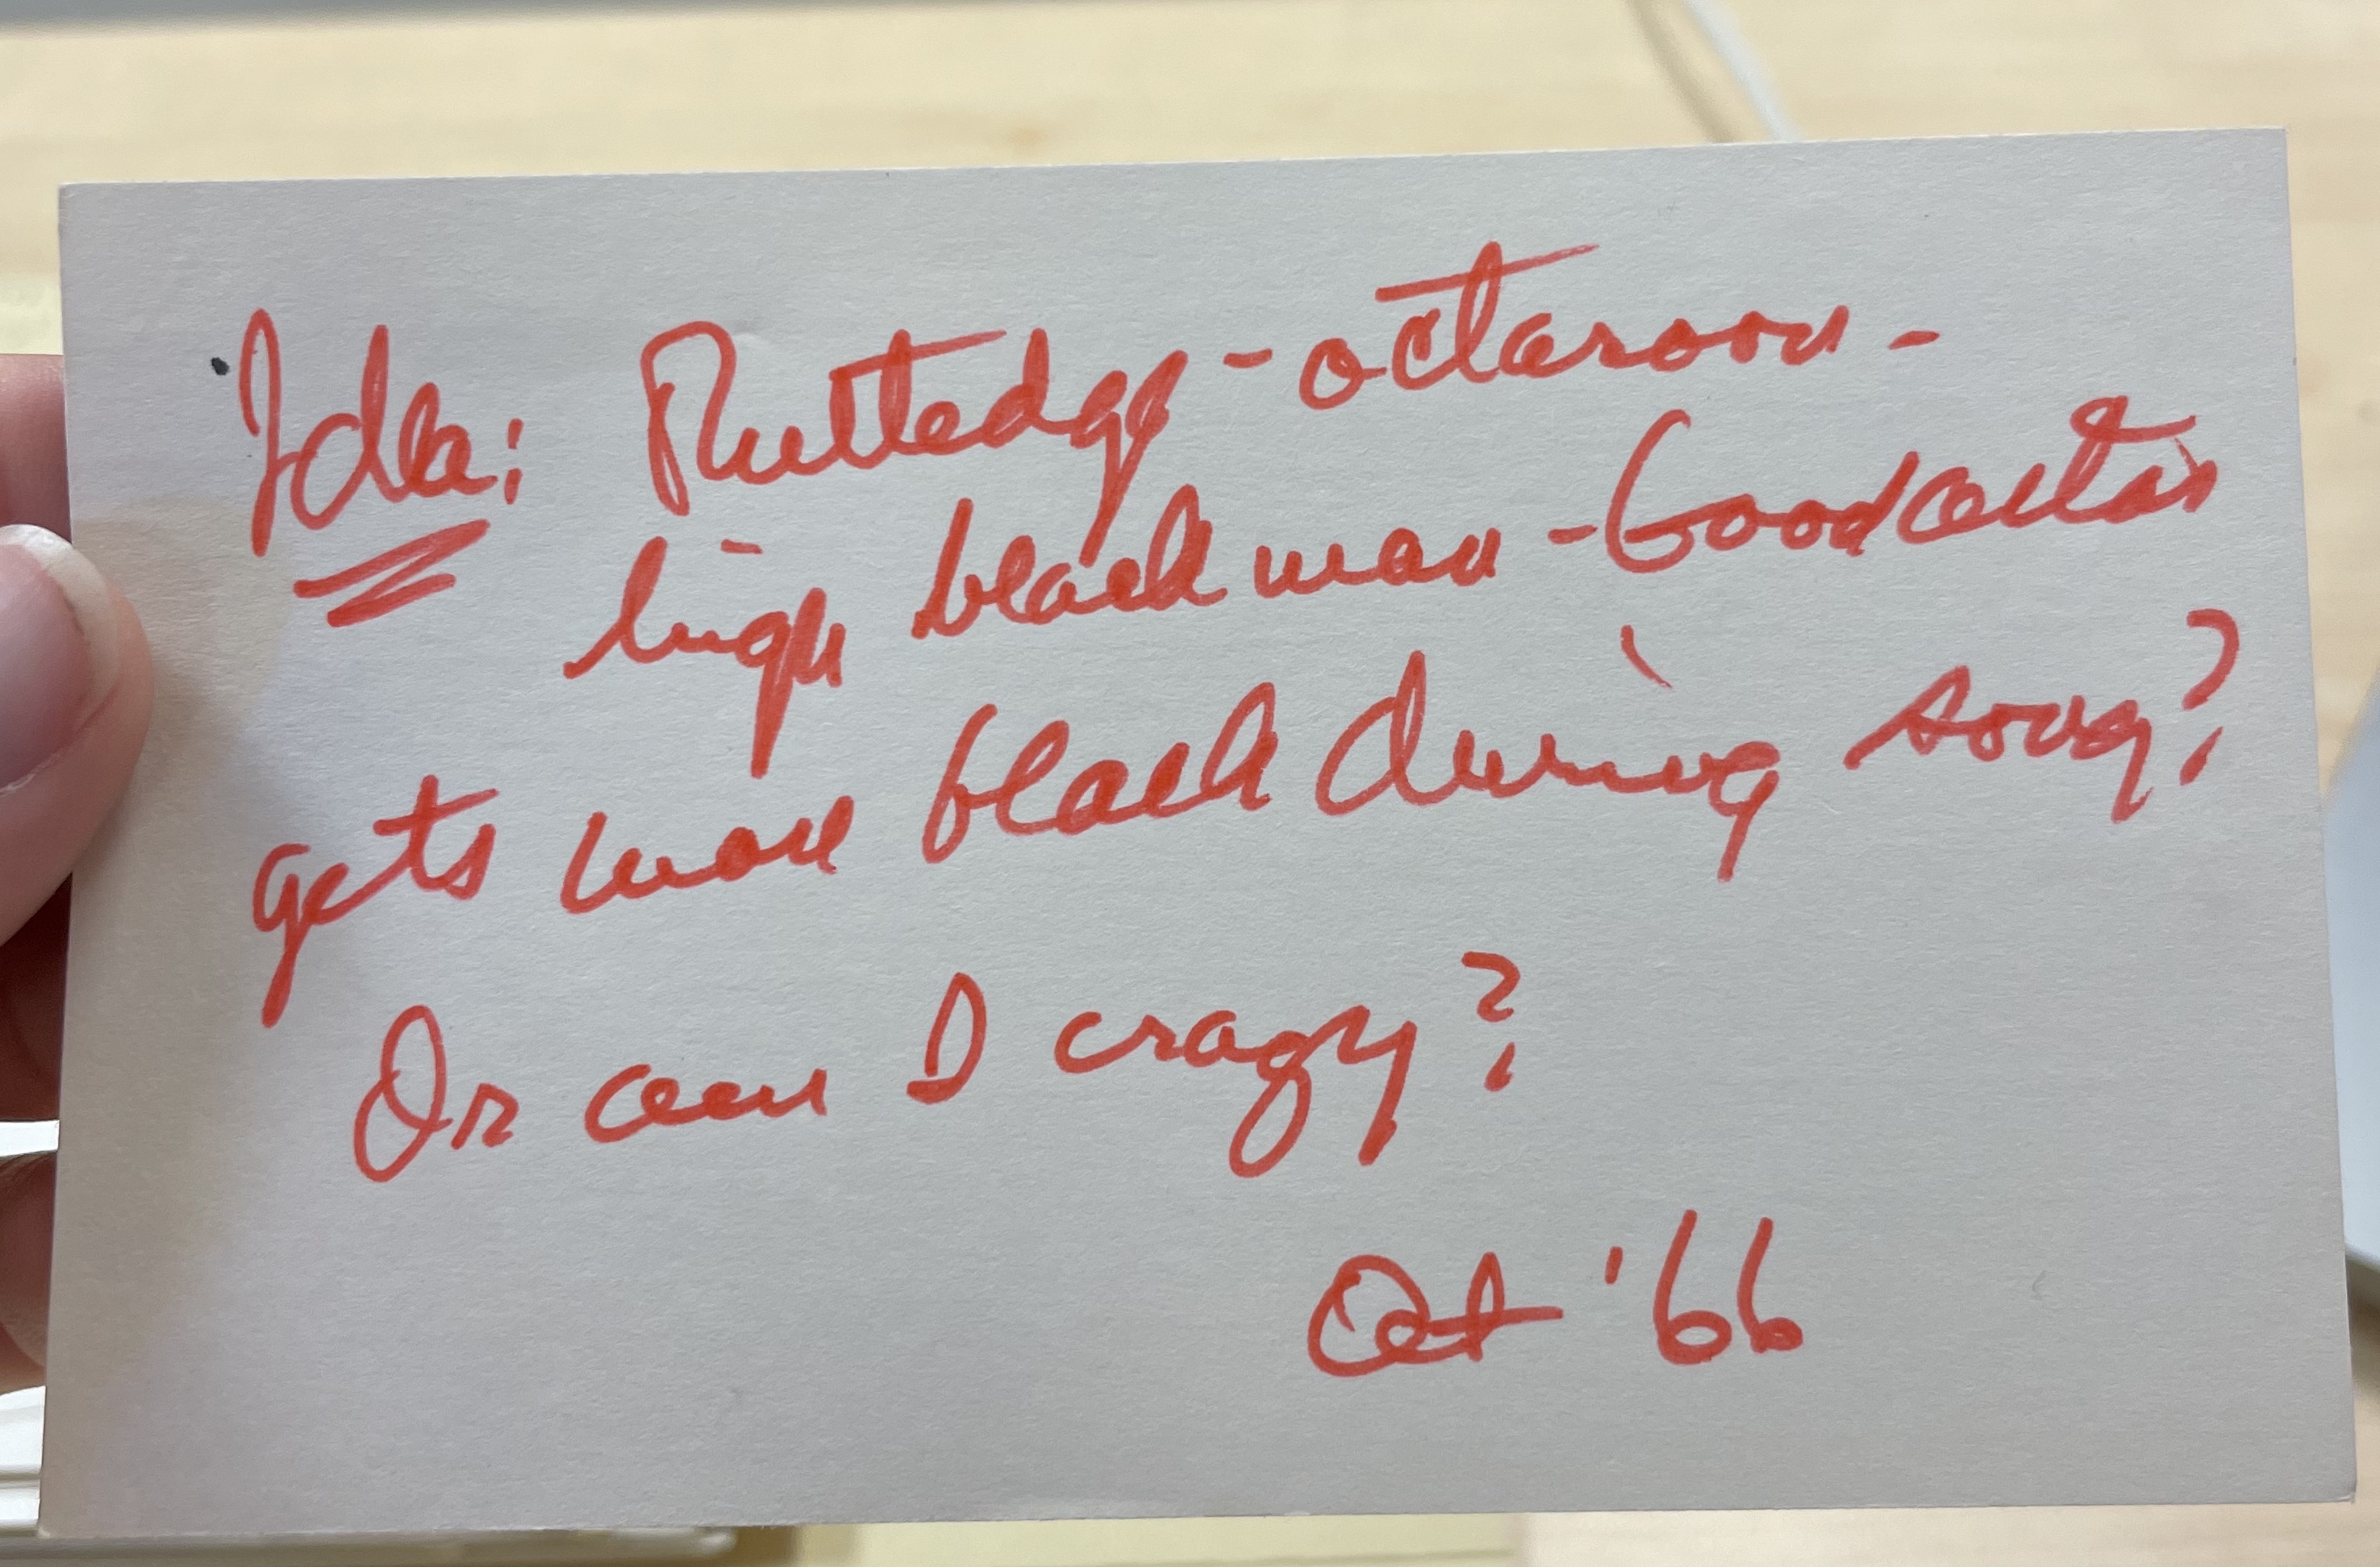 Idea: Rutledge - octaroon -
high black man - Good actor
gets more black during song?
Or am I crazy?
Oct '66